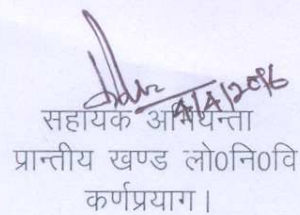 4/4/2016
सहायक अभियन्ता
प्रान्तीय खण्ड लो0नि0वि
कर्णप्रयाग।